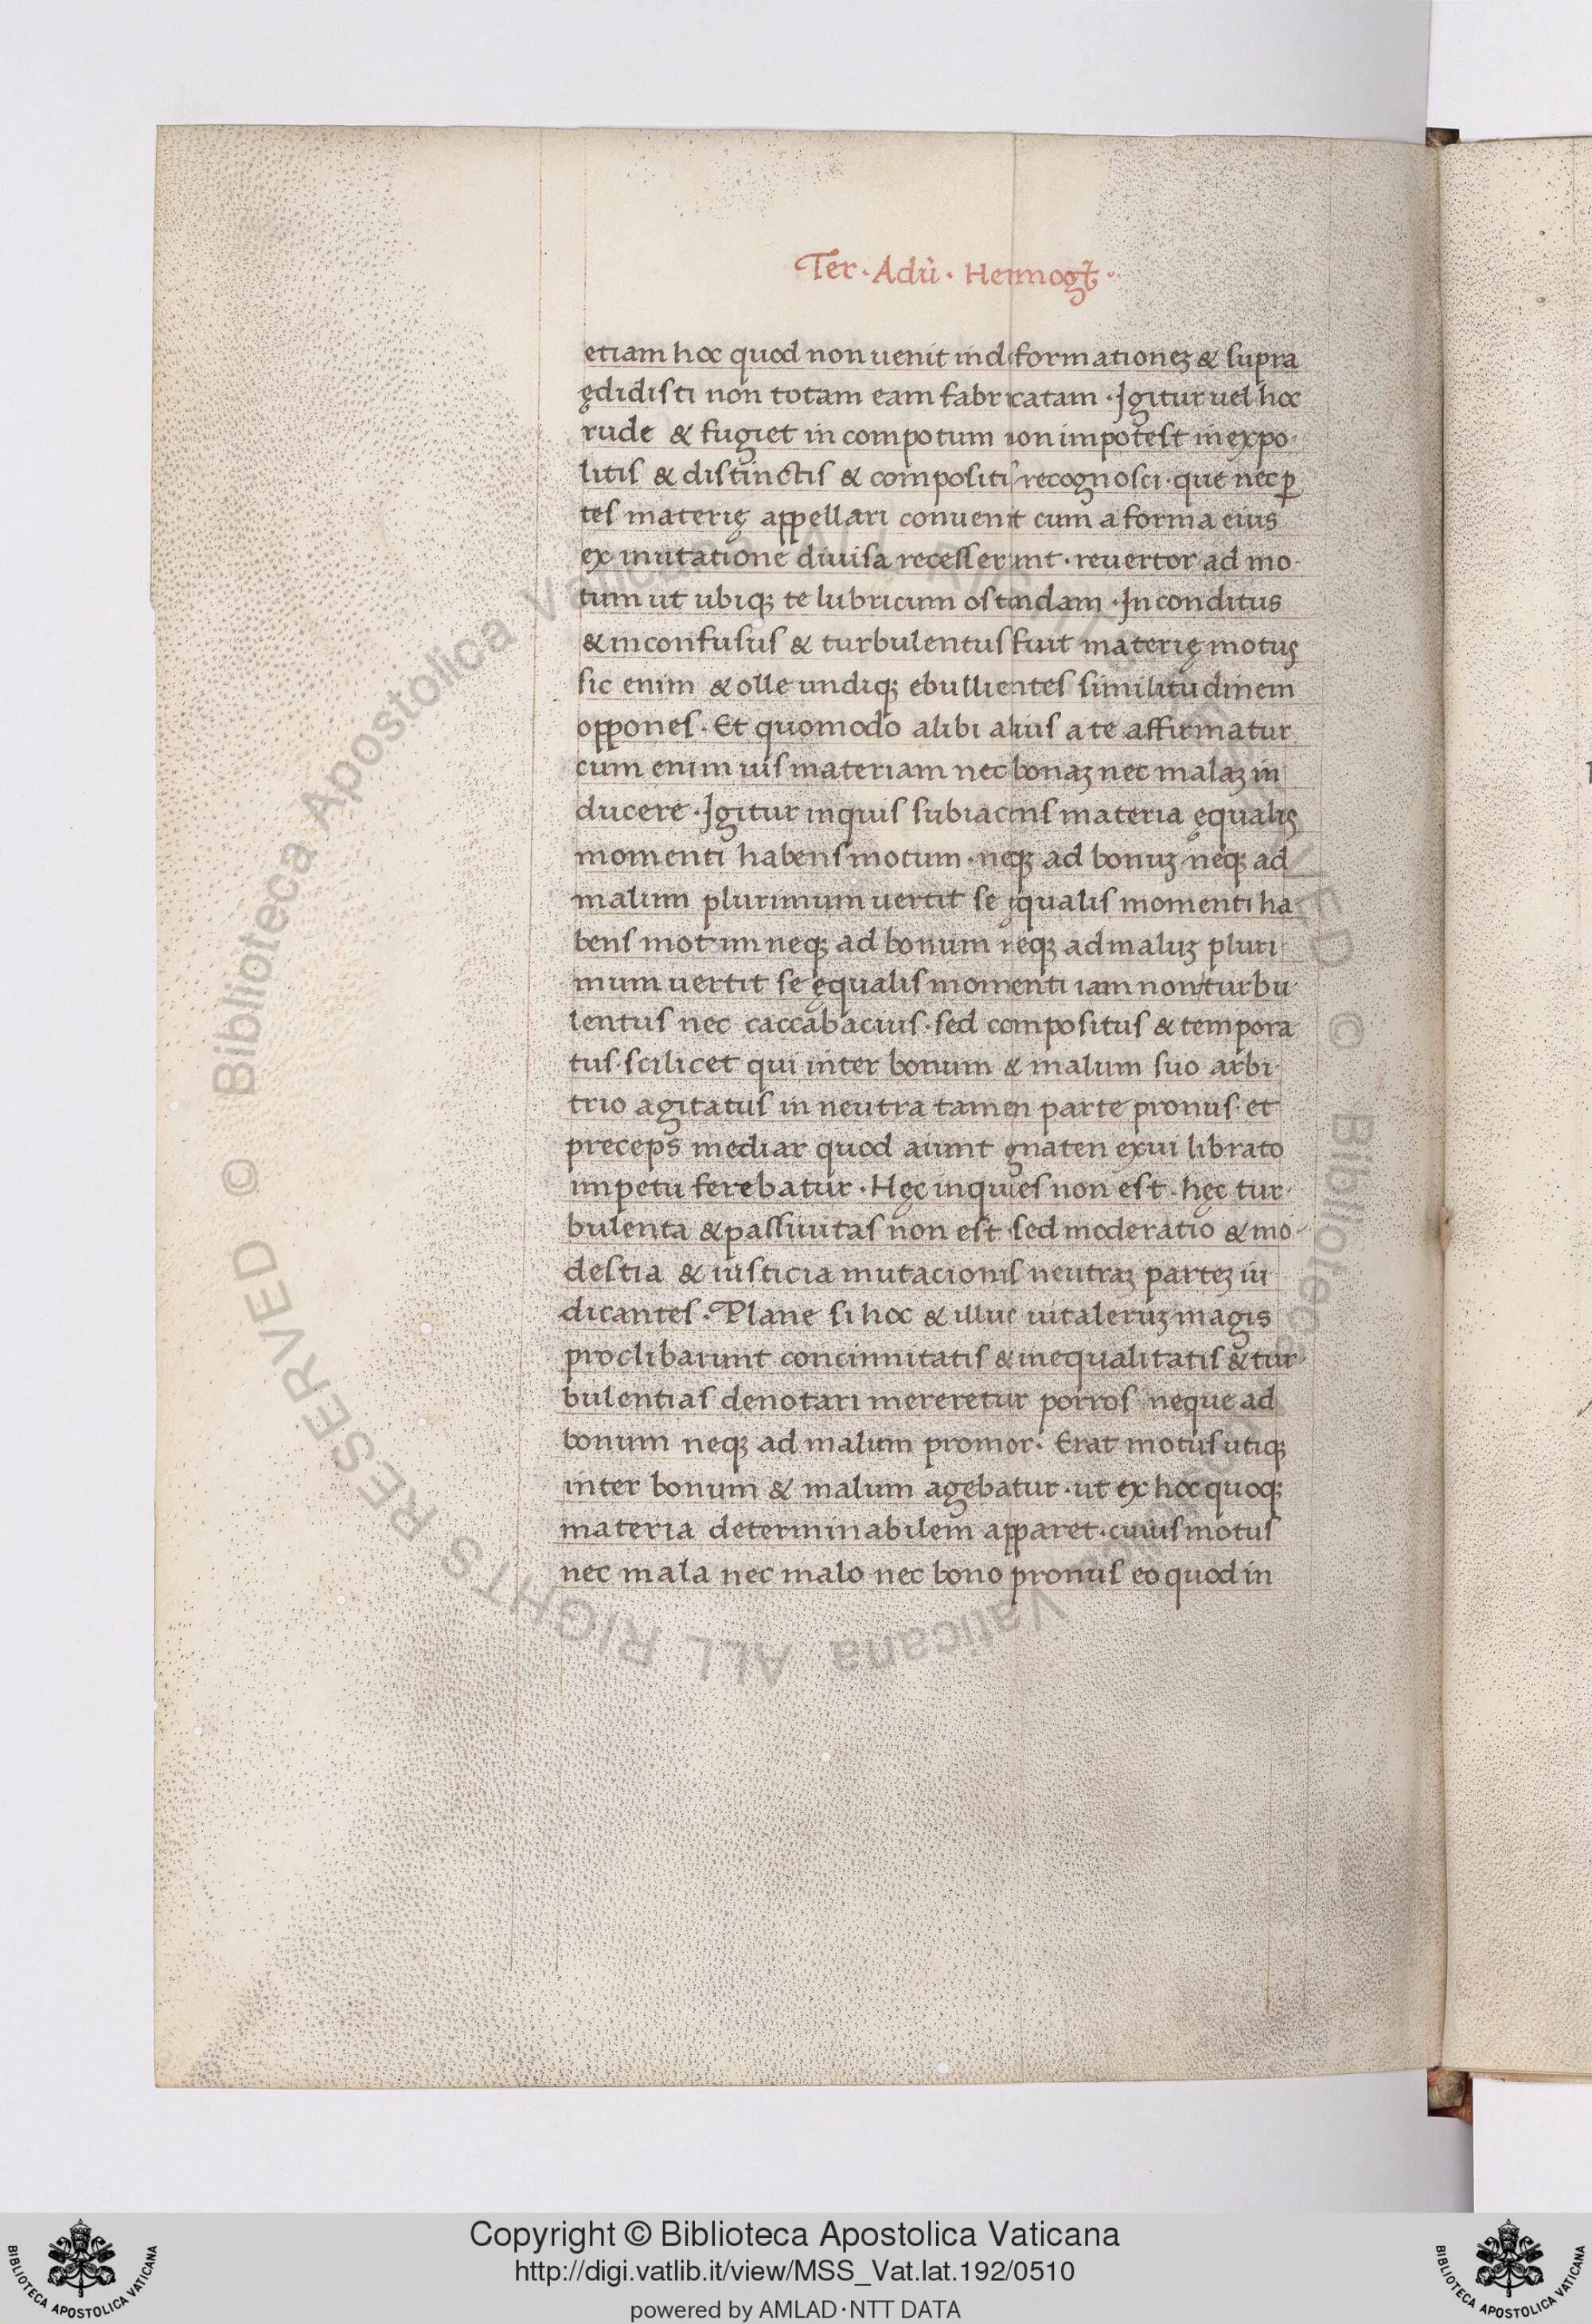 Ter · Adů · Hermogẽ ·
etiam hoc quod non uenit in d formationeꝫ & supra
ędidisti non totam eam fabricatam · Igitur uel hoc
rude & fugiet in compotum non impotest in expo
litis & distinctis & compositis recognosci · que nec ꝑ
tes materię appellari conuenit cum a forma eius
ex mutatione diuisa recesserint · reuertor ad mo
tum ut ubiqꝫ te lubricum ostendam · Inconditus
& inconfusus & turbulentus fuit materię motus
sic enim & olle undiqꝫ ebullientes similitudinem
oppones · Et quomodo alibi alius a te affirmatur
cum enim uis materiam nec bonaꝫ nec malaꝫ in
ducere · Igitur inquis subiacens materia ęqualis
momenti habens motum · neqꝫ ad bonuꝫ neqꝫ ad
malum plurimum uertit se ęqualis momenti ha
bens motum neqꝫ ad bonum neqꝫ ad maluꝫ pluri
mum uertit se ęqualis momenti iam non turbu
lentus nec caccabacius · sed compositus & tempora
tus · scilicet qui inter bonum & malum suo arbi
trio agitatus in neutra tamen parte pronus · et
preceps mediar quod aiunt gnaten exui librato
impetu ferebatur · Hęc inquies non est · hęc tur
bulenta & passiuitas non est · sed moderatio & mo
destia & iusticia mutacionis neutraꝫ parteꝫ iu
dicantes · Plane si hoc & illuc uitaleruꝫ magis
proclibarunt concinnitatis & inequalitatis & tur
bulentias denotari mereretur porros neque ad
bonum neqꝫ ad malum promor · Erat motus utiqꝫ
inter bonum & malum agebatur · ut ex hoc quoqꝫ
materia determinabilem apparet · cuius motus
nec mala nec malo nec bono pronus eo quod in
© Biblioteca Apostolica Vaticana ALL RIGHTS RESERVED
© Biblioteca Apostolica Vaticana ALL RIGHTS RESERVED
Copyright © Biblioteca Apostolica Vaticana
http://digi.vatlib.it/view/MSS_Vat.lat.192/0510
powered by AMLAD·NTT DATA
BIBLIOTECA APOSTOLICA VATICANA
BIBLIOTECA APOSTOLICA VATICANA